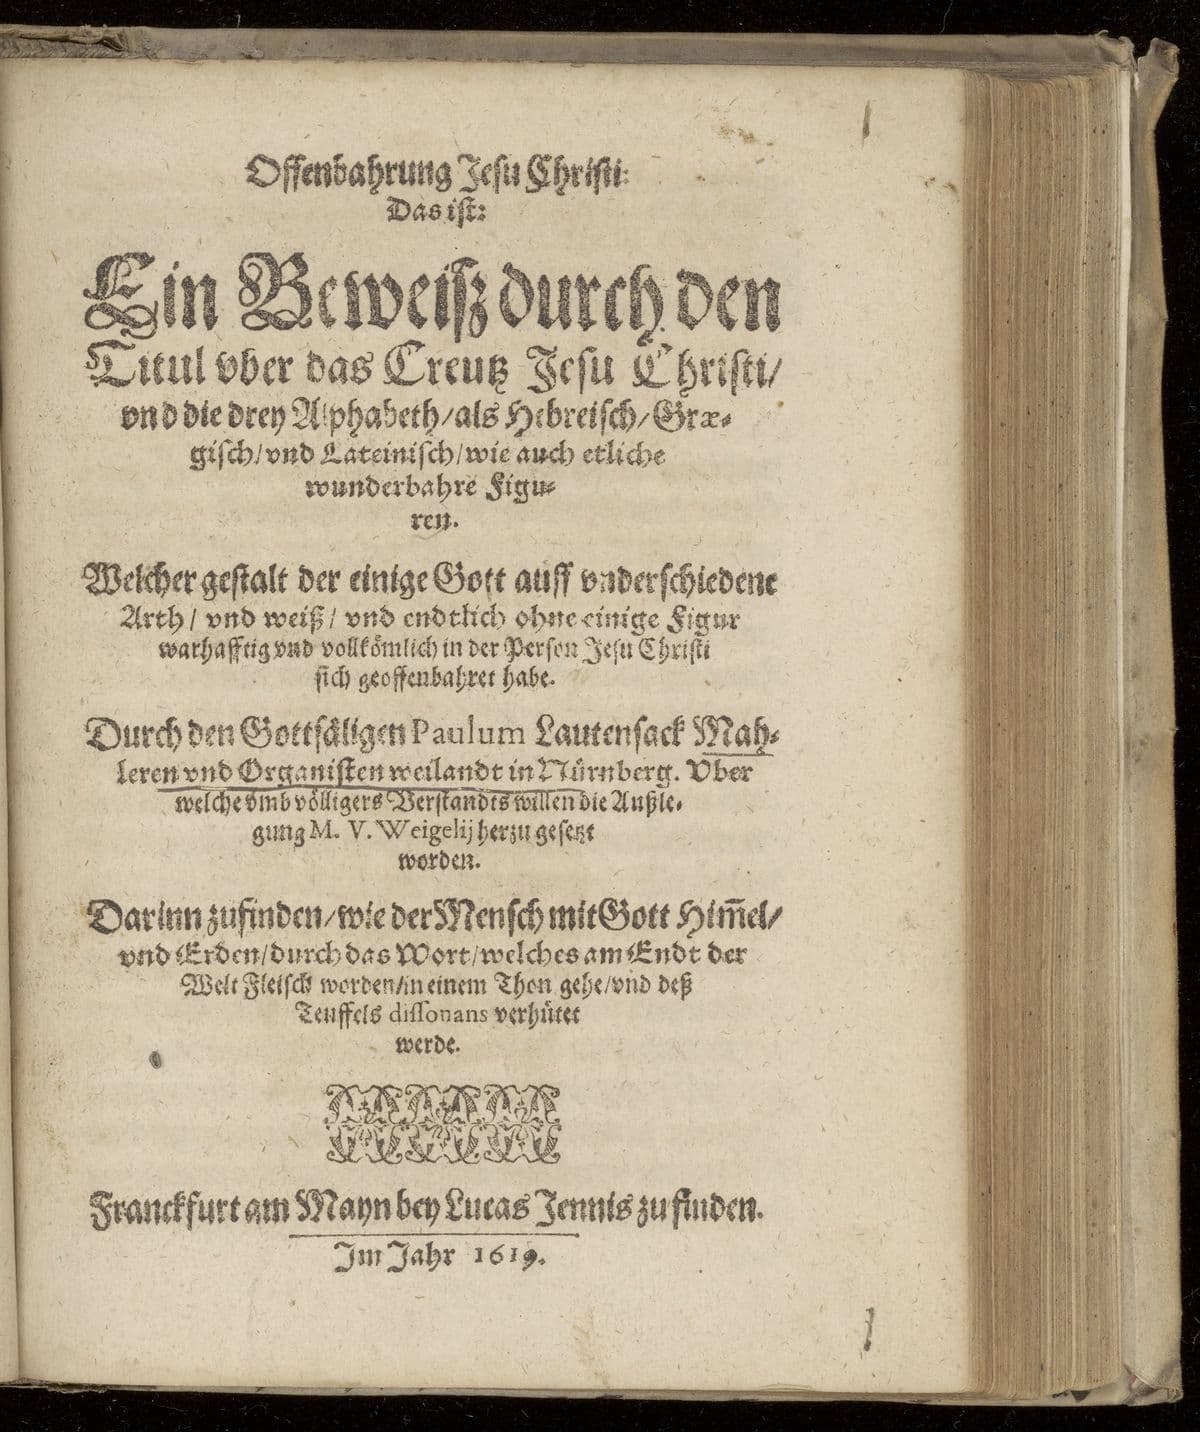 Offenbahrung Jesu Christi:
Das ist:
Ein Beweisz durch den
Titul vber das Creutz Jesu Christi/
vnd die drey Alphabeth/als Hebreisch/Græ-
gisch/vnd Lateinisch/wie auch etliche
wunderbahre Figu-
ren.
Welcher gestalt der einige Gott auff vnderschiedene
Arth/ vnd weiß/ vnd endtlich ohne einige Figur
warhafftig vnd vollkömlich in der Person Jesu Christi
sich geoffenbahret habe.
Durch den Gottsäligen Paulum Lautensack Mah-
leren vnd Organisten weilandt in Nürnberg. Vber
welche vmb völligers Verstandts willen die Außle-
gung M. V. Weigelij herzu gesetzt
worden.
Darinn zufinden/wie der Mensch mit Gott Him̅el/
vnd Erden/durch das Wort/welches am Endt der
Welt Fleisch worden/in einem Thon gehe/vnd deß
Teuffels dissonans verhütet
werde.
Franckfurt am Mayn bey Lucas Jennis zu finden.
Im Jahr 1619.